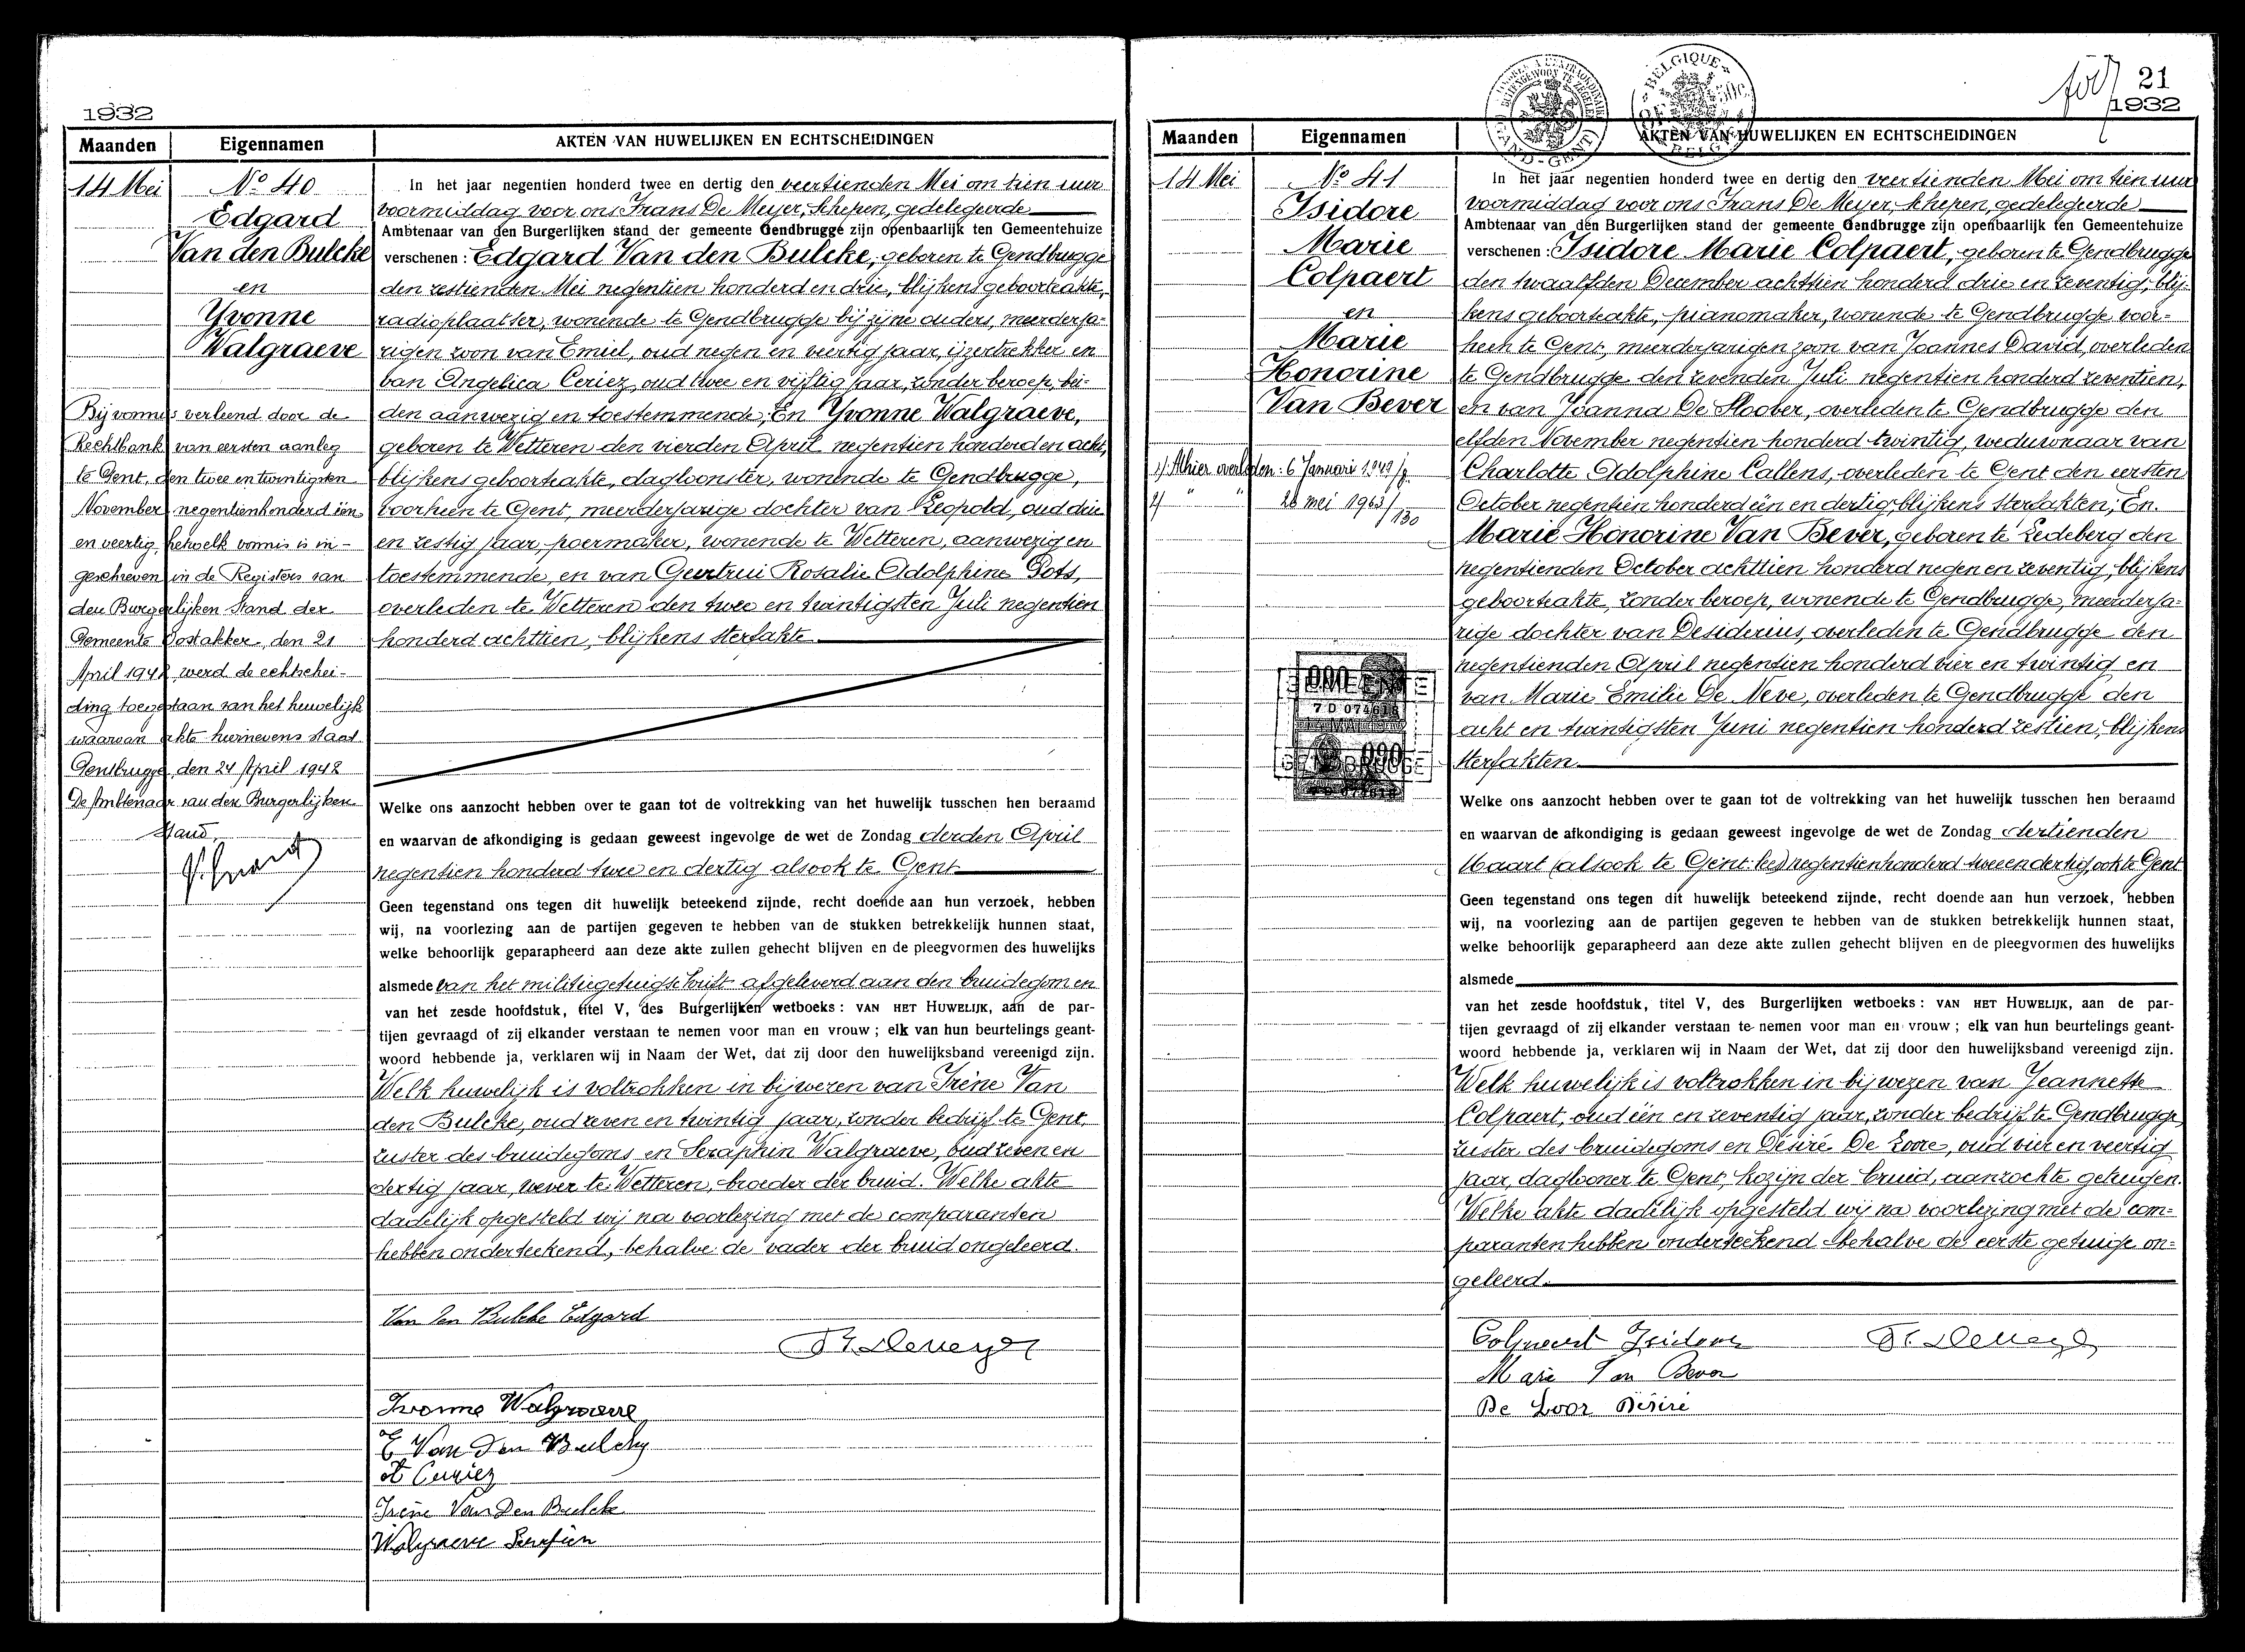 1932
Maanden Eigennamen AKTEN VAN HUWELIJKEN EN ECHTSCHEIDINGEN
14 Mei
No 40
Edgard
Van den Bulcke
en
Yvonne
Walgraeve
Bij vonnis verleend door de
Rechtbank van eersten aanleg
te Gent, den twee en twintigsten
November negentienhonderd één
en veertig, hetwelk vonnis is in-
geschreven in de Registers van
den Burgerlijken Stand der
Gemeente Oostakker, den 21
April 1942, werd de echtschei-
ding toegestaan van het huwelijk
waarvan akte hiernevens staat
Gentbrugge, den 24 April 1942
De Ambtenaar van den Burgerlijken
Stand,
In het jaar negentien honderd twee en dertig den veertienden Mei om tien uur
voormiddag voor ons Frans De Meyer, Schepen, gedelegeerde
Ambtenaar van den Burgerlijken stand der gemeente Gendbrugge zijn openbaarlijk ten Gemeentehuize
verschenen : Edgard Van den Bulcke, geboren te Gendbrugge
den zestienden Mei negentien honderd en drie, blijkens geboorteakte,
radioplaatser, wonende te Gendbrugge bij zijne ouders, meerderja-
rigen zoon van Emiel, oud negen en veertig jaar, ijzertrekker en
van Angelica Ceriez, oud twee en vijftig jaar, zonder beroep, bei-
den aanwezig en toestemmende; En Yvonne Walgraeve,
geboren te Wetteren den vierden April negentien honderd en acht,
blijkens geboorteakte, dagloonster, wonende te Gendbrugge,
voorheen te Gent, meerderjarige dochter van Leopold, oud drie
en zestig jaar, poermaker, wonende te Wetteren, aanwezig en
toestemmende, en van Geertrui Rosalie Adolphine Pots,
overleden te Wetteren den twee en twintigsten Juli negentien
honderd achttien, blijkens sterfakte
Welke ons aanzocht hebben over te gaan tot de voltrekking van het huwelijk tusschen hen beraamd
en waarvan de afkondiging is gedaan geweest ingevolge de wet de Zondag derden April
negentien honderd twee en dertig alsook te Gent
Geen tegenstand ons tegen dit huwelijk beteekend zijnde, recht doende aan hun verzoek, hebben
wij, na voorlezing aan de partijen gegeven te hebben van de stukken betrekkelijk hunnen staat,
welke behoorlijk geparapheerd aan deze akte zullen gehecht blijven en de pleegvormen des huwelijks
alsmede van het militiegetuigschrift afgeleverd aan den bruidegom en
van het zesde hoofdstuk, titel V, des Burgerlijken wetboeks : VAN HET HUWELIJK, aan de par-
tijen gevraagd of zij elkander verstaan te nemen voor man en vrouw ; elk van hun beurtelings geant-
woord hebbende ja, verklaren wij in Naam der Wet, dat zij door den huwelijksband vereenigd zijn.
Welk huwelijk is voltrokken in bijwezen van Irène Van
den Bulcke, oud zeven en twintig jaar, zonder bedrijf te Gent,
zuster des bruidegoms en Seraphin Walgraeve, oud zeven en
dertig jaar, wever te Wetteren, broeder der bruid. Welke akte
dadelijk opgesteld wij na voorlezing met de comparanten
hebben onderteekend, behalve de vader der bruid ongeleerd.
Van Den Bulcke Edgard
Fr. Demeyer
Ivonne Walgraeve
E Van Den Bulcke
A Ceriez
Irène Van Den Bulcke
Walgraeve Serafien
21
1932
Maanden Eigennamen AKTEN VAN HUWELIJKEN EN ECHTSCHEIDINGEN
14 Mei
No 41
Isidore
Marie
Colpaert
en
Marie
Honorine
Van Bever
1) Alhier overleden: 6 Januari 1949/8
2) " " 28 mei 1963/130
In het jaar negentien honderd twee en dertig den veertienden Mei om tien uur
voormiddag voor ons Frans De Meyer, Schepen, gedelegeerde
Ambtenaar van den Burgerlijken stand der gemeente Gendbrugge zijn openbaarlijk ten Gemeentehuize
verschenen : Isidore Marie Colpaert, geboren te Gendbrugge
den twaalfden December achttien honderd drie en zeventig, blij-
kens geboorteakte, pianomaker, wonende te Gendbrugge voor-
heen te Gent, meerderjarigen zoon van Joannes David, overleden
te Gendbrugge den zevenden Juli negentien honderd zeventien,
en van Joanna De Sloover, overleden te Gendbrugge den
elfden November negentien honderd twintig, weduwnaar van
Charlotte Adolphine Callens, overleden te Gent den eersten
October negentien honderd één en dertig, blijkens sterfakten; En.
Marie Honorine Van Bever, geboren te Ledeberg den
negentienden October achttien honderd negen en zeventig, blijkens
geboorteakte, zonder beroep, wonende te Gendbrugge, meerderja-
rige dochter van Desiderius, overleden te Gendbrugge den
negentienden April negentien honderd vier en twintig en
van Marie Emilie De Neve, overleden te Gendbrugge den
acht en twintigsten Juni negentien honderd zestien, blijkens
sterfakten
Welke ons aanzocht hebben over te gaan tot de voltrekking van het huwelijk tusschen hen beraamd
en waarvan de afkondiging is gedaan geweest ingevolge de wet de Zondag dertienden
Maart (alsook te Gent: lees) negentienhonderd twee en dertig, ook te Gent
Geen tegenstand ons tegen dit huwelijk beteekend zijnde, recht doende aan hun verzoek, hebben
wij, na voorlezing aan de partijen gegeven te hebben van de stukken betrekkelijk hunnen staat,
welke behoorlijk geparapheerd aan deze akte zullen gehecht blijven en de pleegvormen des huwelijks
alsmede
van het zesde hoofdstuk, titel V, des Burgerlijken wetboeks : VAN HET HUWELIJK, aan de par-
tijen gevraagd of zij elkander verstaan te nemen voor man en vrouw ; elk van hun beurtelings geant-
woord hebbende ja, verklaren wij in Naam der Wet, dat zij door den huwelijksband vereenigd zijn.
Welk huwelijk is voltrokken in bijwezen van Jeannette
Colpaert, oud één en zeventig jaar, zonder bedrijf te Gendbrugge,
zuster des bruidegoms en Désiré De Loore, oud vier en veertig
jaar, daglooner te Gent, kozijn der bruid, aanzochte getuigen.
Welke akte dadelijk opgesteld wij na voorlezing met de com-
paranten hebben onderteekend behalve de eerste getuige on-
geleerd.
Colpaert Isidoor
Fr. Demeyer
Marie Van Bever
De Loor Désiré